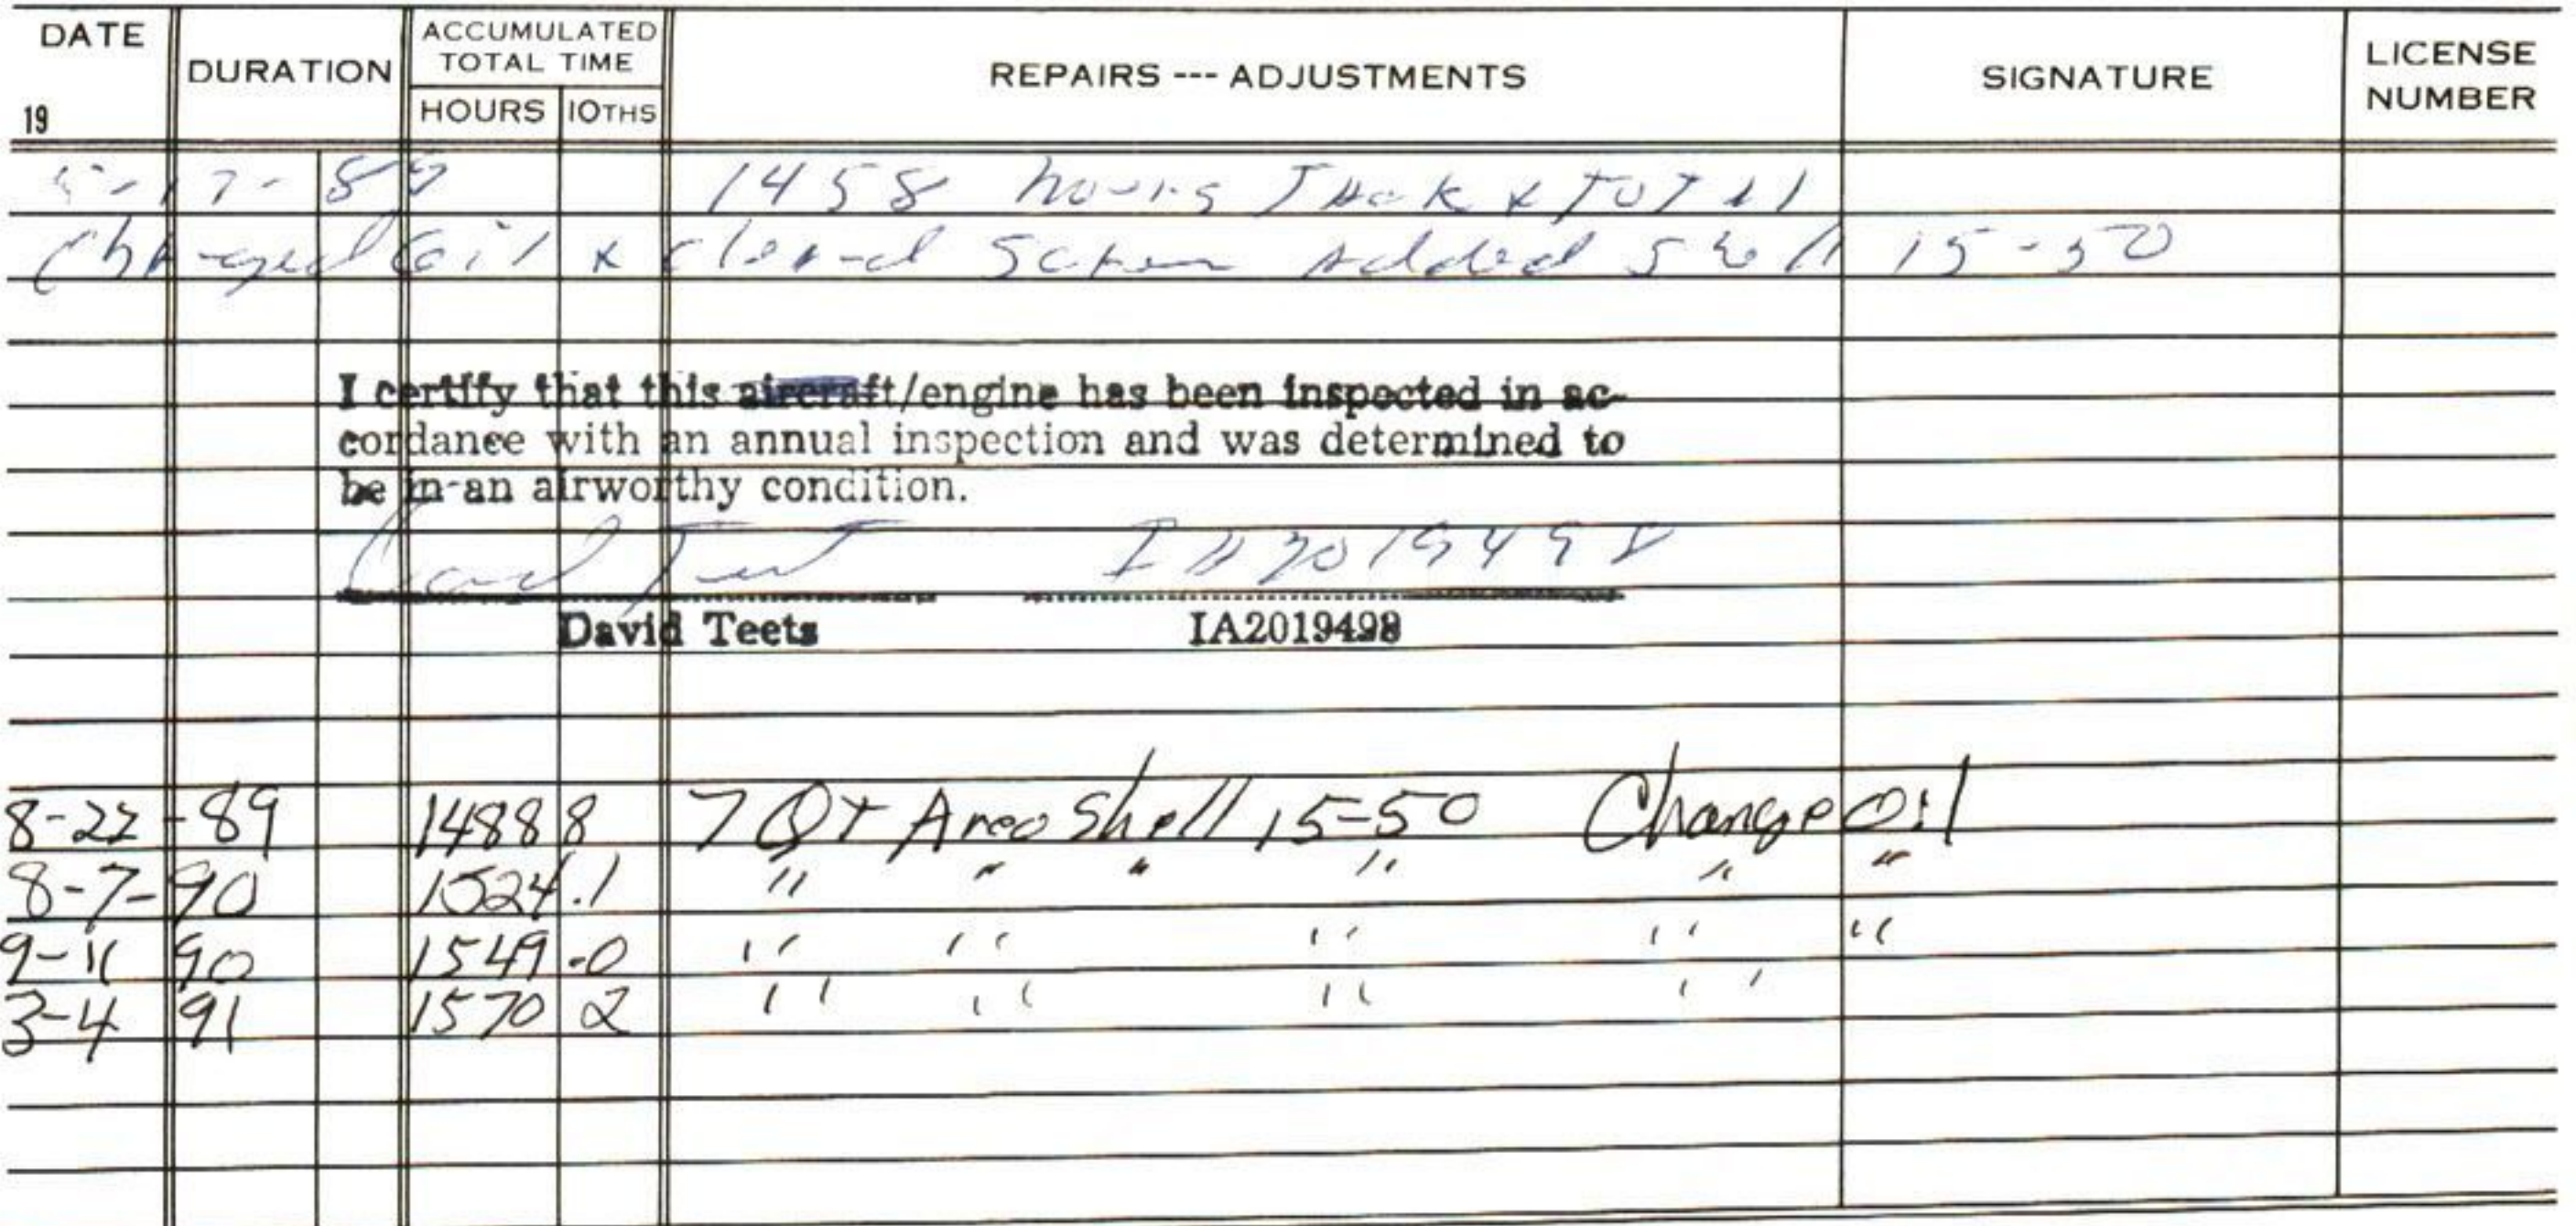 DATE DURATION ACCUMULATED TOTAL TIME REPAIRS --- ADJUSTMENTS SIGNATURE LICENSE NUMBER
19 HOURS 10THS
17-89 1458 hours Tack & Total
Changed oil & cleaned Screen Added Shell 15-50
I certify that this aircraft/engine has been inspected in ac-
cordance with an annual inspection and was determined to
be in an airworthy condition.
David Teets IA2019498
8-22-89 1488 8 7 Qt Areo Shell 15-50 Change Oil
8-7-90 1524 .1 " " " " " "
9-11 90 1549 -0 " " " " "
3-4 91 1570 2 " " " "